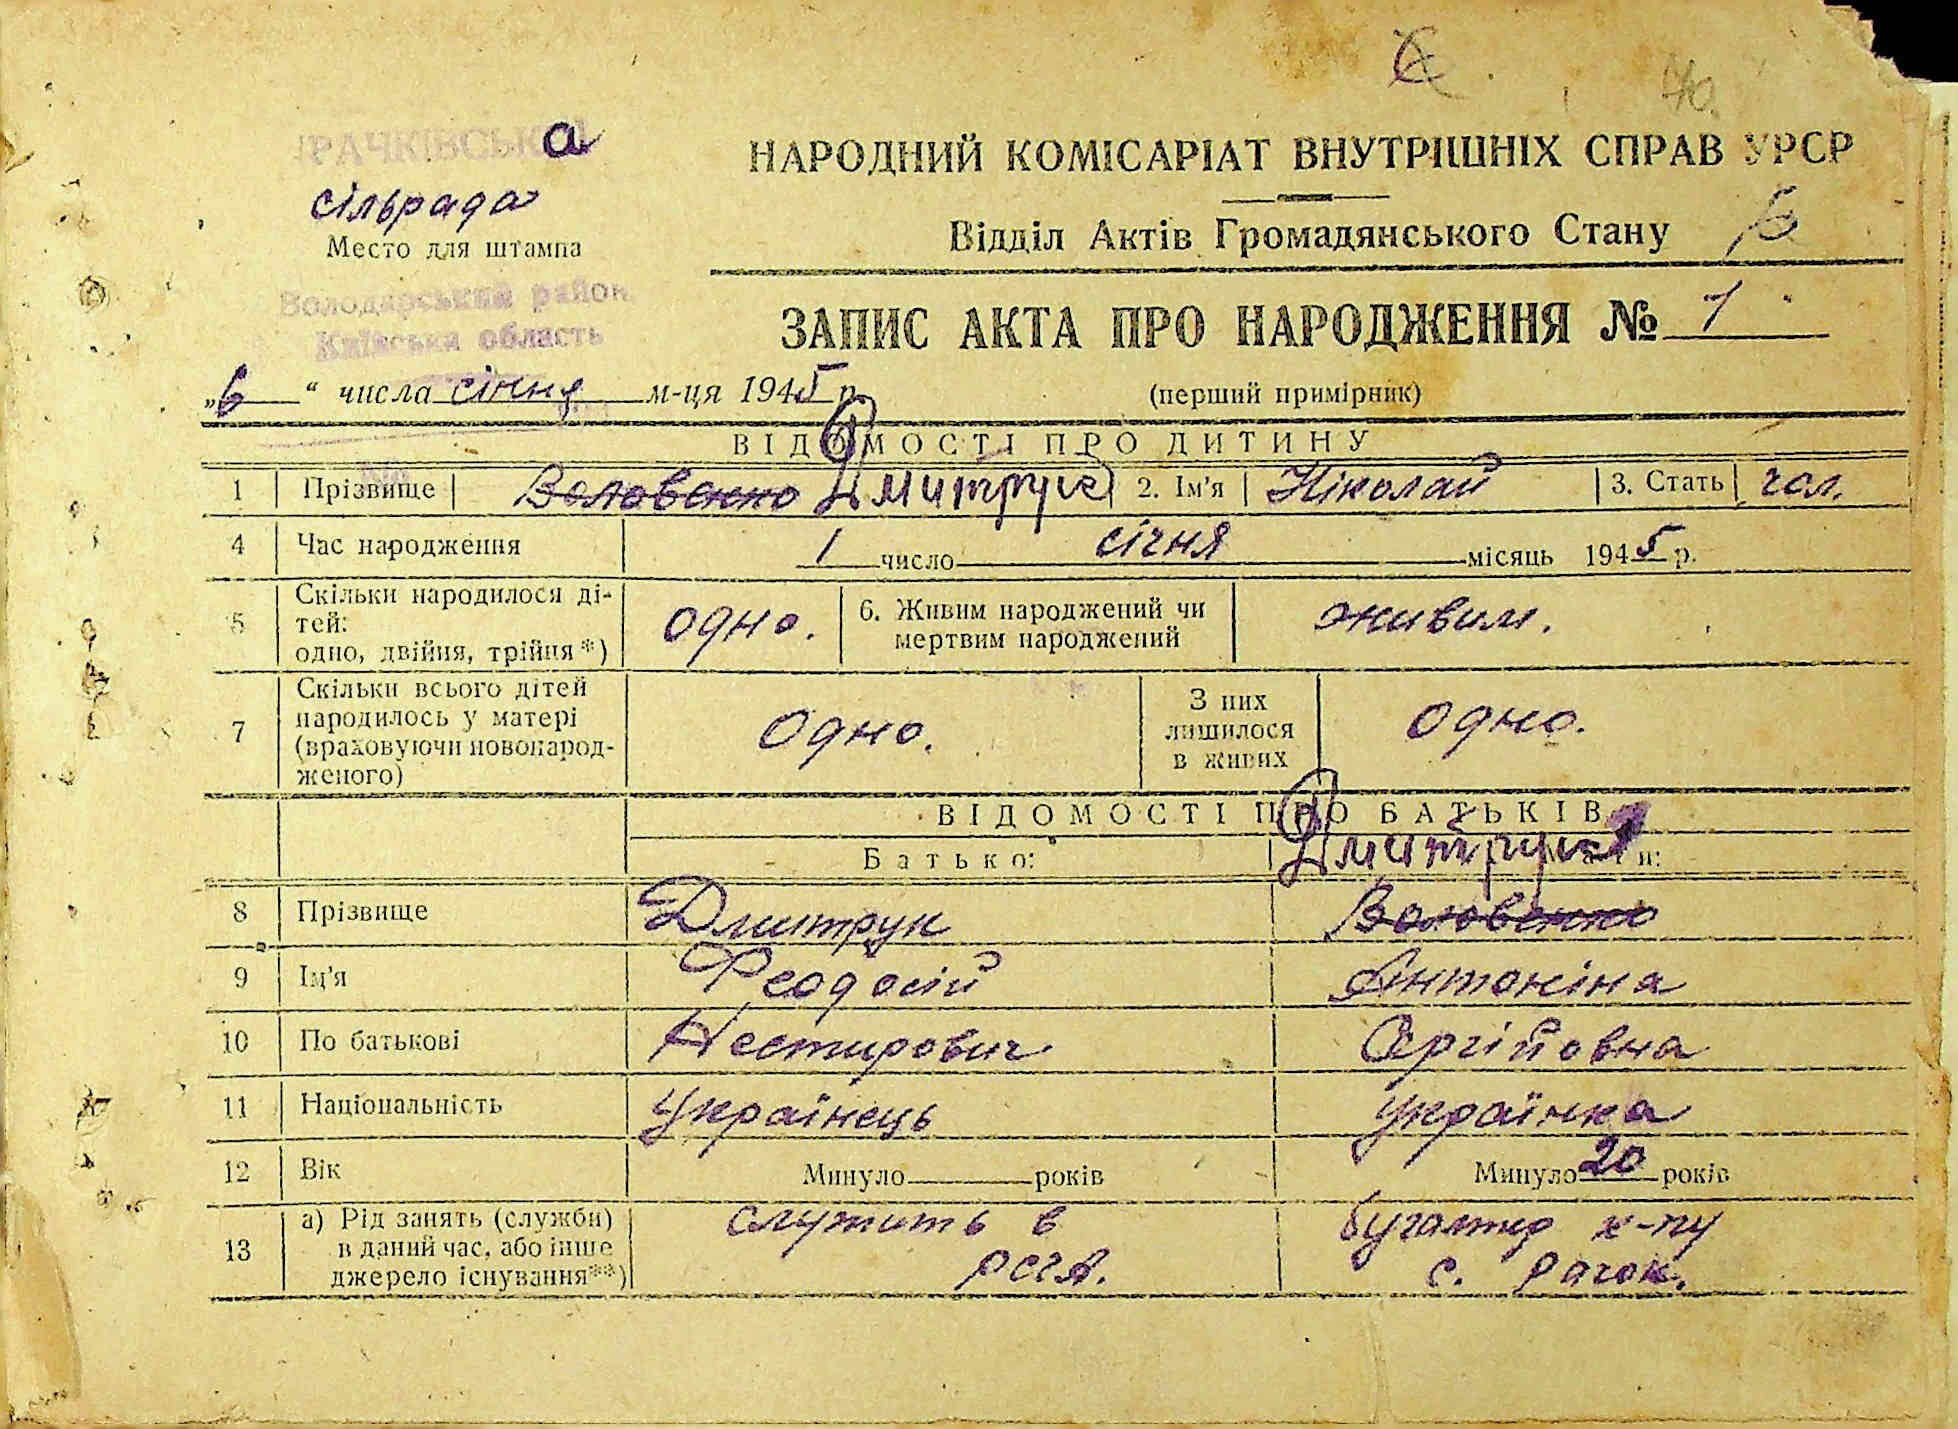 70.
РАЧКІВСЬКа
сільрада
Место для штампа
Володарський район
Київська область
НАРОДНИЙ КОМІСАРІАТ ВНУТРІШНІХ СПРАВ УРСР
Відділ Актів Громадянського Стану
ЗАПИС АКТА ПРО НАРОДЖЕННЯ № 1
„6“ числа січня м-ця 1945 р.
(перший примірник)
ВІДОМОСТІ ПРО ДИТИНУ
1 Прізвище Воловенко Дмитрук 2. Ім'я Ніколай 3. Стать чол.
4 Час народження 1 число січня місяць 1945 р.
5 Скільки народилося ді-
тей:
одно, двійня, трійня*) одно. 6. Живим народжений чи
мертвим народжений живим.
7 Скільки всього дітей
народилось у матері
(враховуючи новонарод-
женого) Одно. З них
лишилося
в живих Одно.
ВІДОМОСТІ ПРО БАТЬКІВ
Батько: Мати:
Дмитрук
8 Прізвище Дмитрук Воловенко
9 Ім'я Феодосій Антоніна
10 По батькові Нестирович Сергійовна
11 Національність Українець Українка
12 Вік Минуло років Минуло 20 років
13 а) Рід занять (служби)
в даний час, або інше
джерело існування**) служить в
РСЧА. бугалтер к-пу
с. Рачок.